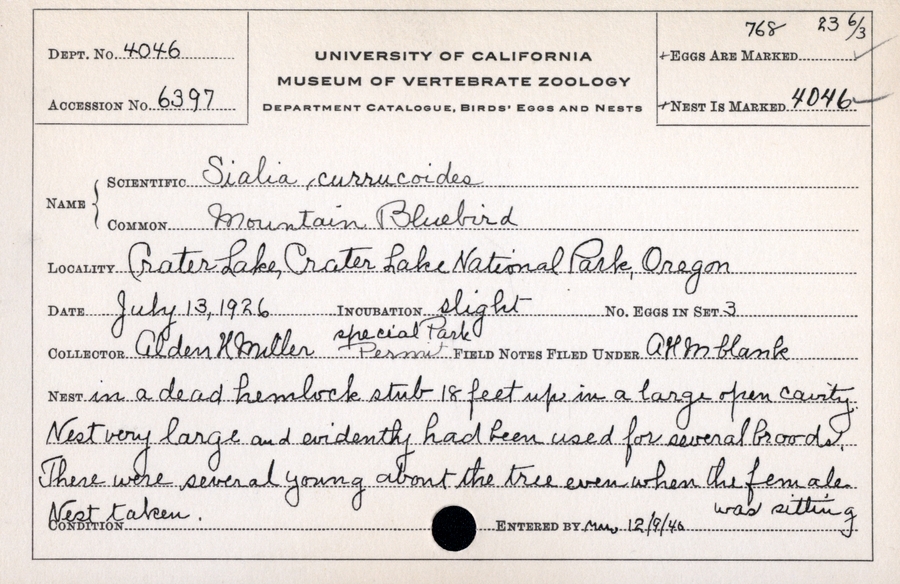 768 23 6/3
DEPT. No. 4046
UNIVERSITY OF CALIFORNIA
+EGGS ARE MARKED
MUSEUM OF VERTEBRATE ZOOLOGY
ACCESSION No. 6397
DEPARTMENT CATALOGUE, BIRDS' EGGS AND NESTS
+NEST IS MARKED 4046
NAME
SCIENTIFIC Sialia currucoides
COMMON Mountain Bluebird
LOCALITY Crater Lake, Crater Lake National Park, Oregon
DATE July 13, 1926 INCUBATION slight No. EGGS IN SET 3
special Park
COLLECTOR Alden H Miller Permit FIELD NOTES FILED UNDER AHM blank
NEST in a dead hemlock stub 18 feet up in a large open cavity.
Nest very large and evidently had been used for several broods.
There were several young about the tree even when the female
was sitting
Nest taken.
CONDITION ENTERED BY 12/9/46